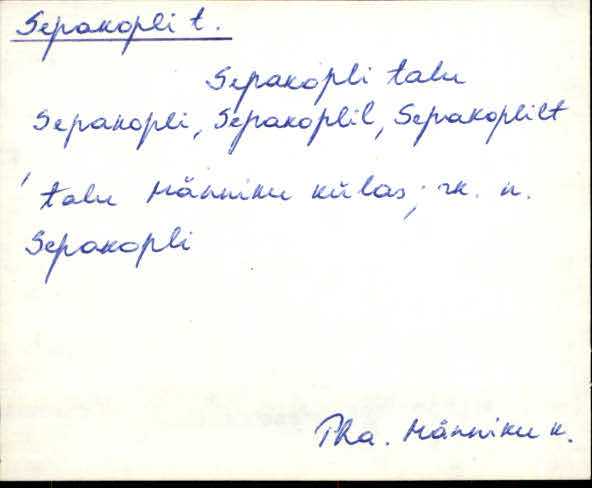 Sepakopli t.
Sepakopli talu
Sepakopli, Sepakoplil, Sepakoplilt
talu Männiku külas; rk. n.
Sepakopli
Pha. Männiku k.